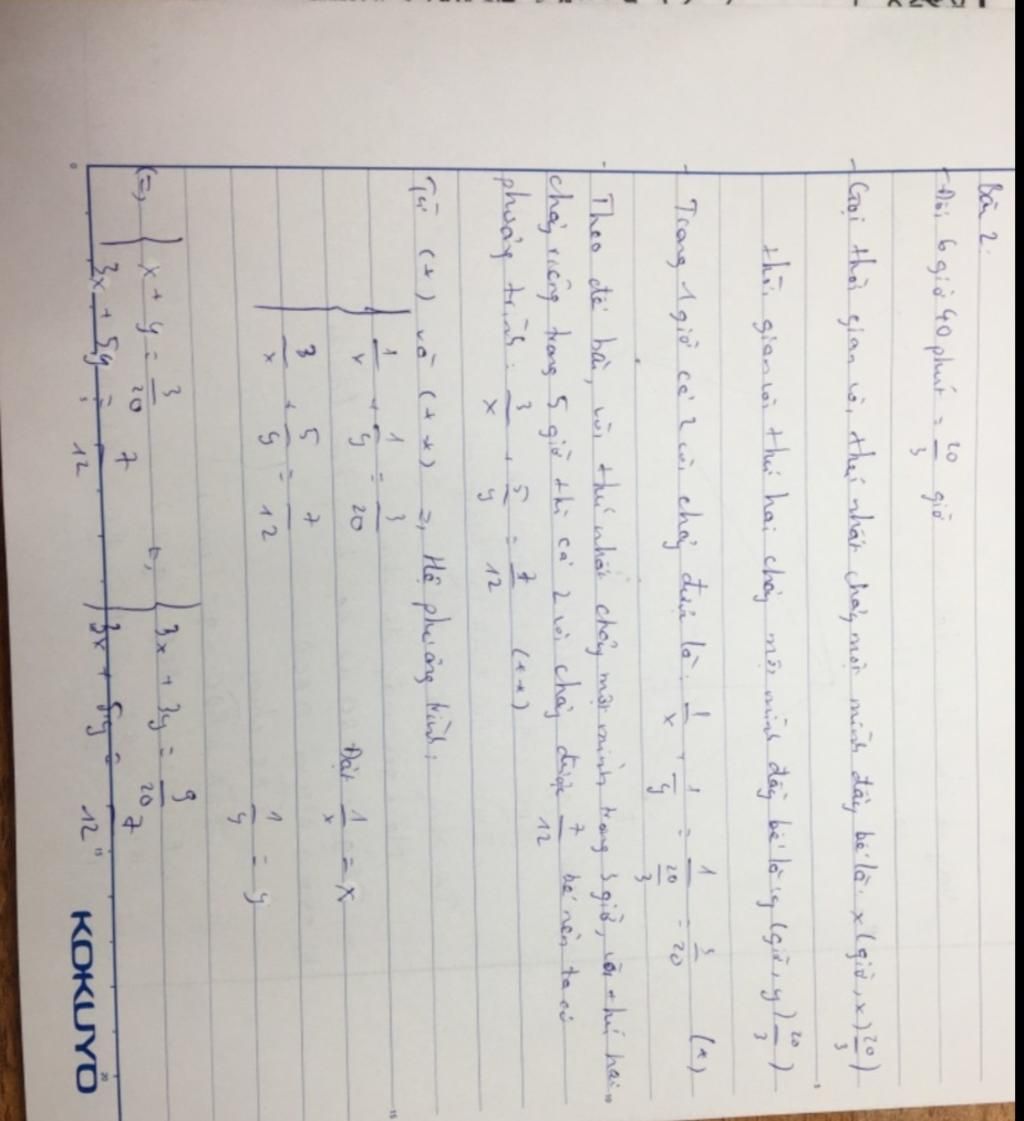 Bài 2:
- Đổi 6 giờ 40 phút = 20/3 giờ
- Gọi thời gian vòi thứ nhất chảy một mình đầy bể là: x (giờ, x > 20/3)
thời gian vòi thứ hai chảy một mình đầy bể là y (giờ, y > 20/3)
- Trong 1 giờ cả 2 vòi chảy được là: 1/x + 1/y = 1/(20/3) = 3/20 (*)
- Theo đề bài, vòi thứ nhất chảy một mình trong 3 giờ, vòi thứ hai
chảy riêng trong 5 giờ thì cả 2 vòi chảy được 7/12 bể nên ta có
phương trình: 3/x + 5/y = 7/12 (**)
Từ (*) và (**) => Hệ phương trình:
1/x + 1/y = 3/20 Đặt 1/x = x
3/x + 5/y = 7/12 1/y = y
(=) x + y = 3/20 (=) 3x + 3y = 9/20
3x + 5y = 7/12 3x + 5y = 7/12
KOKUYO